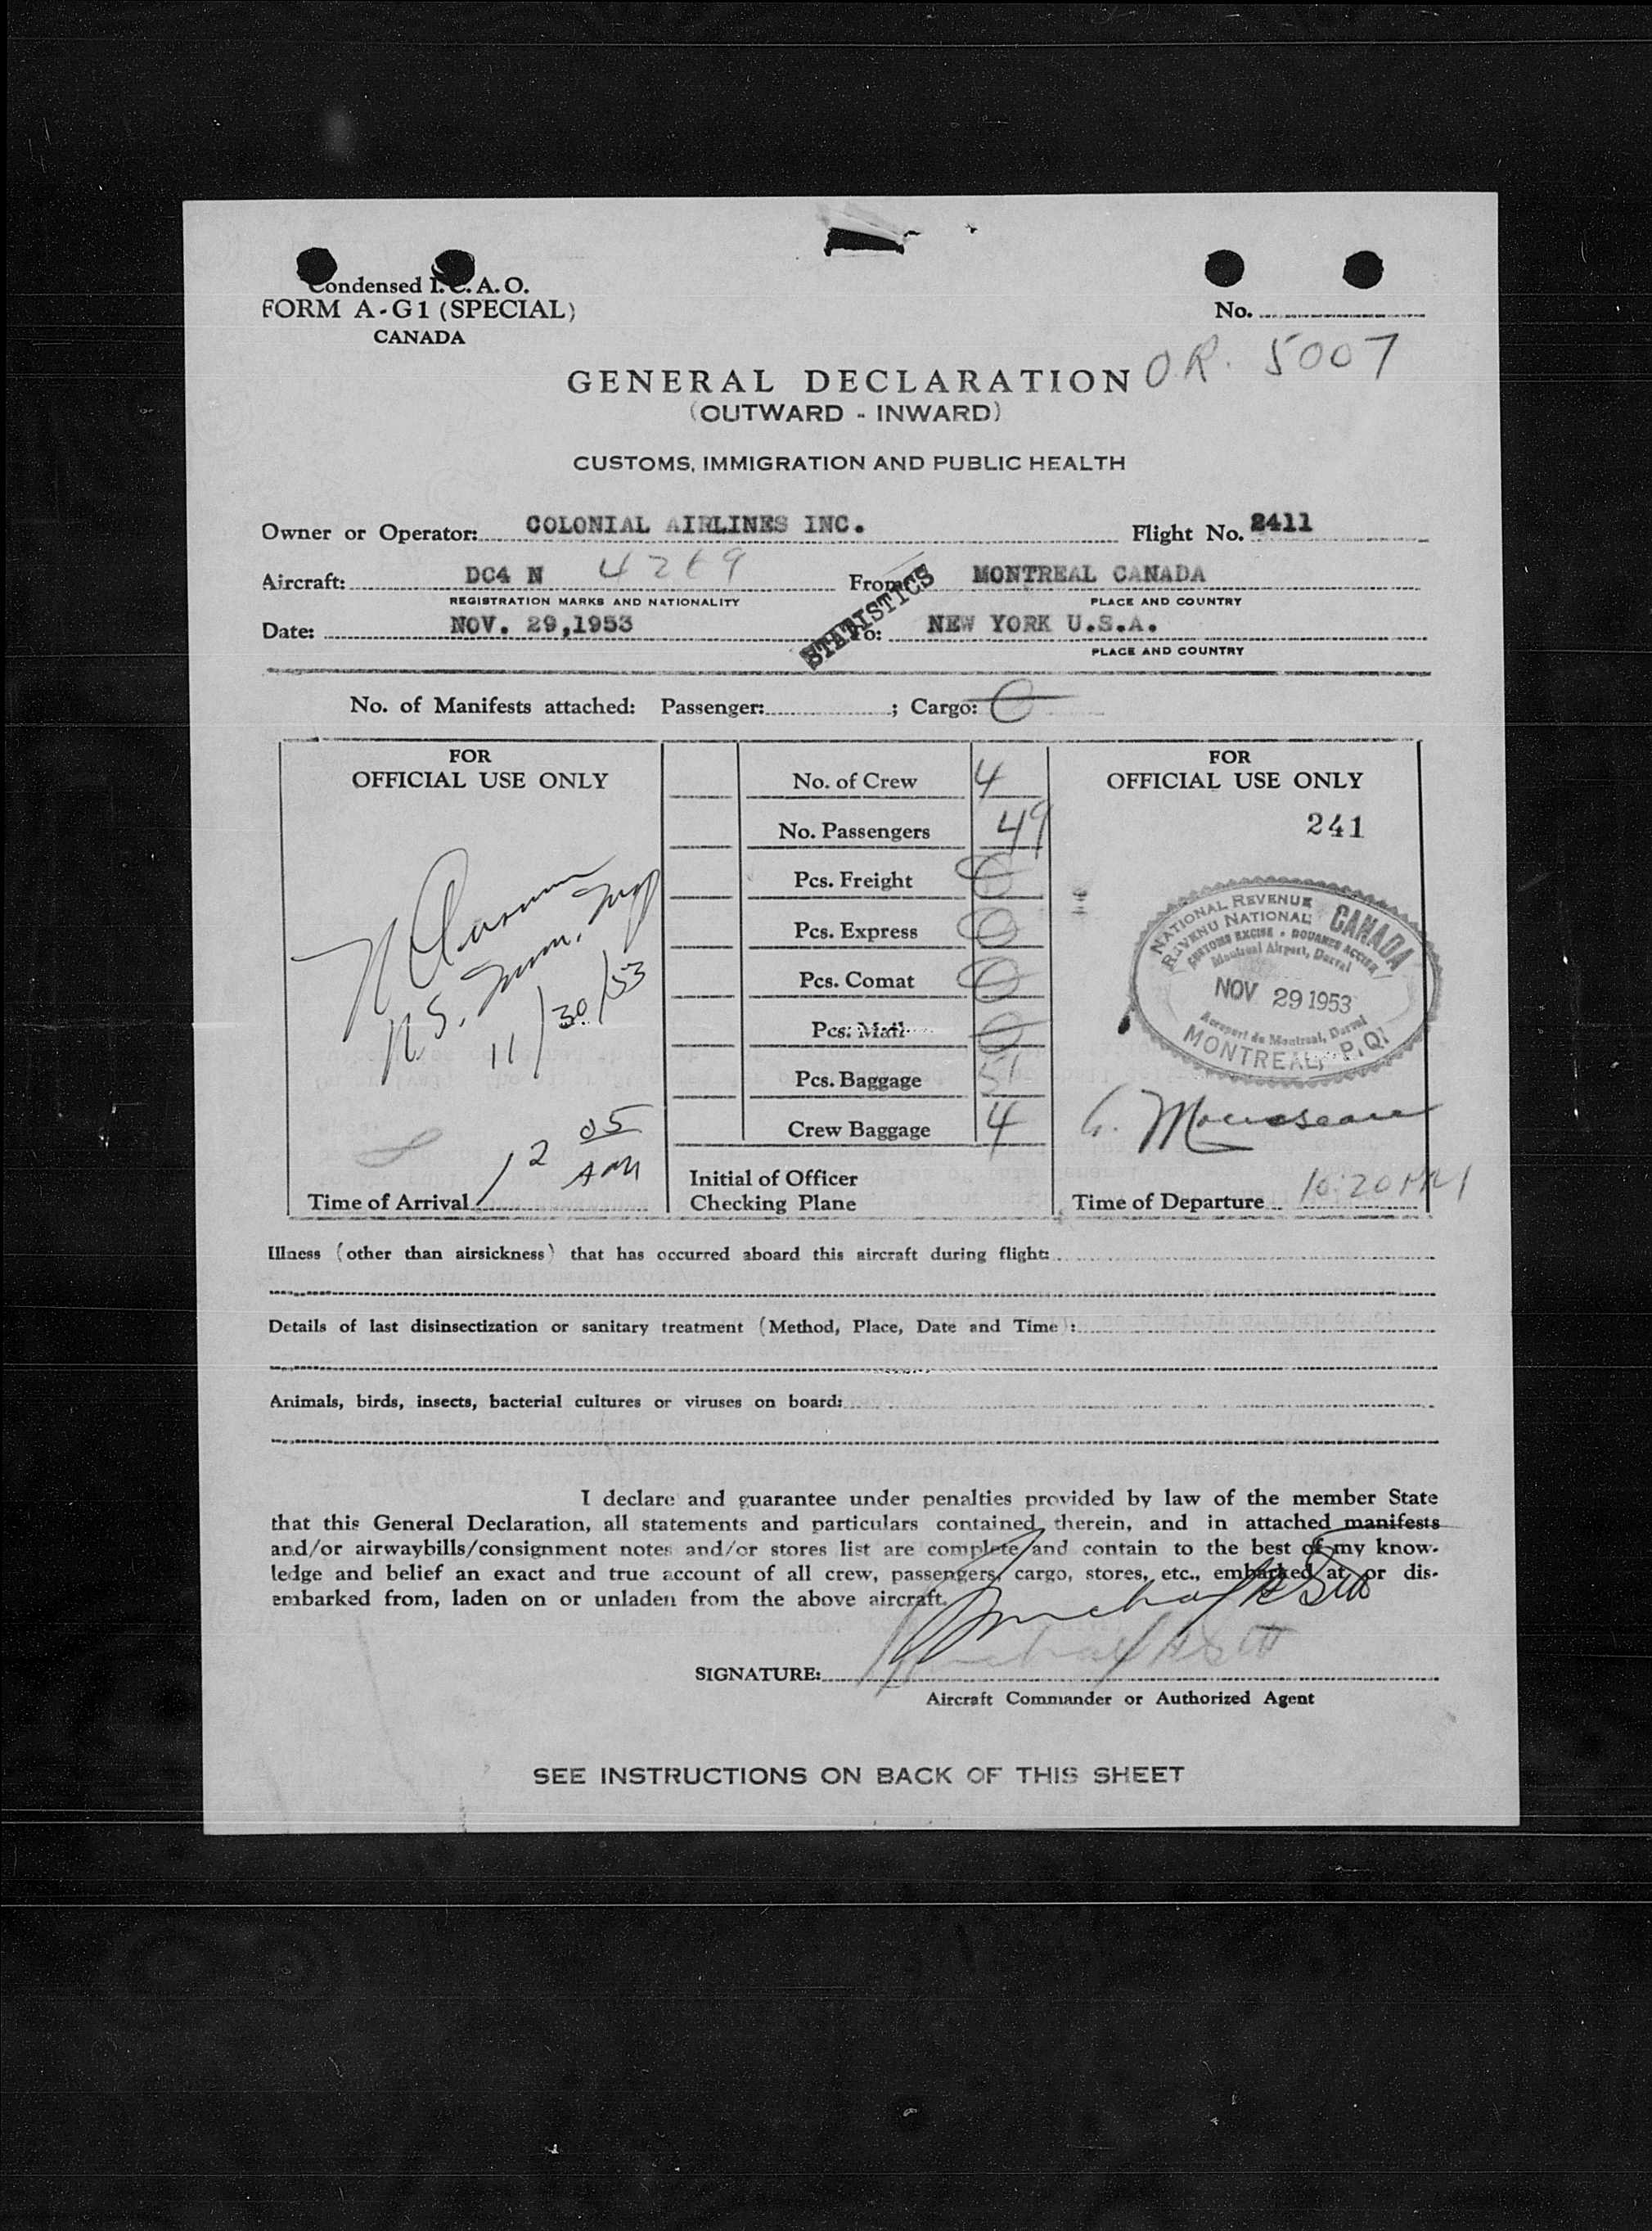 Condensed I.C.A.O.
FORM A-G1 (SPECIAL)
CANADA
No.
O.R. 5007
GENERAL DECLARATION
(OUTWARD - INWARD)
CUSTOMS, IMMIGRATION AND PUBLIC HEALTH
Owner or Operator: COLONIAL AIRLINES INC. Flight No. 2411
Aircraft: DC4 N From: MONTREAL CANADA
REGISTRATION MARKS AND NATIONALITY PLACE AND COUNTRY
STATISTICS
Date: NOV. 29,1953 To: NEW YORK U.S.A.
PLACE AND COUNTRY
No. of Manifests attached: Passenger: ; Cargo: 0
FOR
OFFICIAL USE ONLY
11/30/53
12 05
AM
Time of Arrival
No. of Crew 4
No. Passengers 49
Pcs. Freight 0
Pcs. Express 0
Pcs. Comat 0
Pcs. Mail 0
Pcs. Baggage 51
Crew Baggage 4
Initial of Officer
Checking Plane
FOR
OFFICIAL USE ONLY
241
NATIONAL REVENUE
REVENU NATIONAL
CANADA
CUSTOMS EXCISE • DOUANES ACCISE
Montreal Airport, Dorval
NOV 29 1953
Aeroport de Montreal, Dorval
MONTREAL, P.Q.
Time of Departure 10:20 PM
Illness (other than airsickness) that has occurred aboard this aircraft during flight:
Details of last disinsectization or sanitary treatment (Method, Place, Date and Time):
Animals, birds, insects, bacterial cultures or viruses on board:
I declare and guarantee under penalties provided by law of the member State
that this General Declaration, all statements and particulars contained therein, and in attached manifests
and/or airwaybills/consignment notes and/or stores list are complete and contain to the best of my know-
ledge and belief an exact and true account of all crew, passengers, cargo, stores, etc., embarked at or dis-
embarked from, laden on or unladen from the above aircraft.
SIGNATURE:
Aircraft Commander or Authorized Agent
SEE INSTRUCTIONS ON BACK OF THIS SHEET